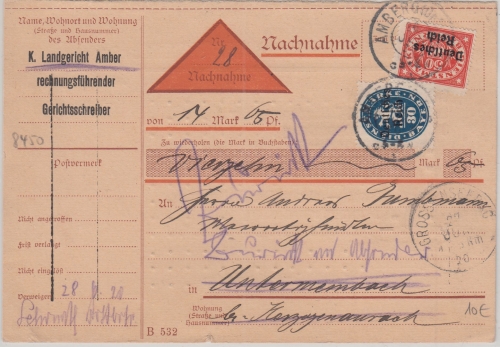 Name, Wohnort und Wohnung
(Straße und Hausnummer)
des Absenders
K. Landgericht Amber
rechnungsführender
Gerichtsschreiber
8450
Postvermerk
Nicht angetroffen
Frist verlangt
Nicht eingelöst
Verweigert
28
Nr.
28
Nachnahme
Nachnahme
AMBERG
Deutsches
Reich
30
BAYERN
von 14 Mark 65 Pf.
Zu wiederholen (die Mark in Buchstaben)
Vierzehn Mark 65 Pf.
An Herrn Andreas
zurück
Zurück an Absender
in Untermembach
Wohnung
(Straße und
Hausnummer)
bei Herzogenaurach
B 532
GROSS
20
10€